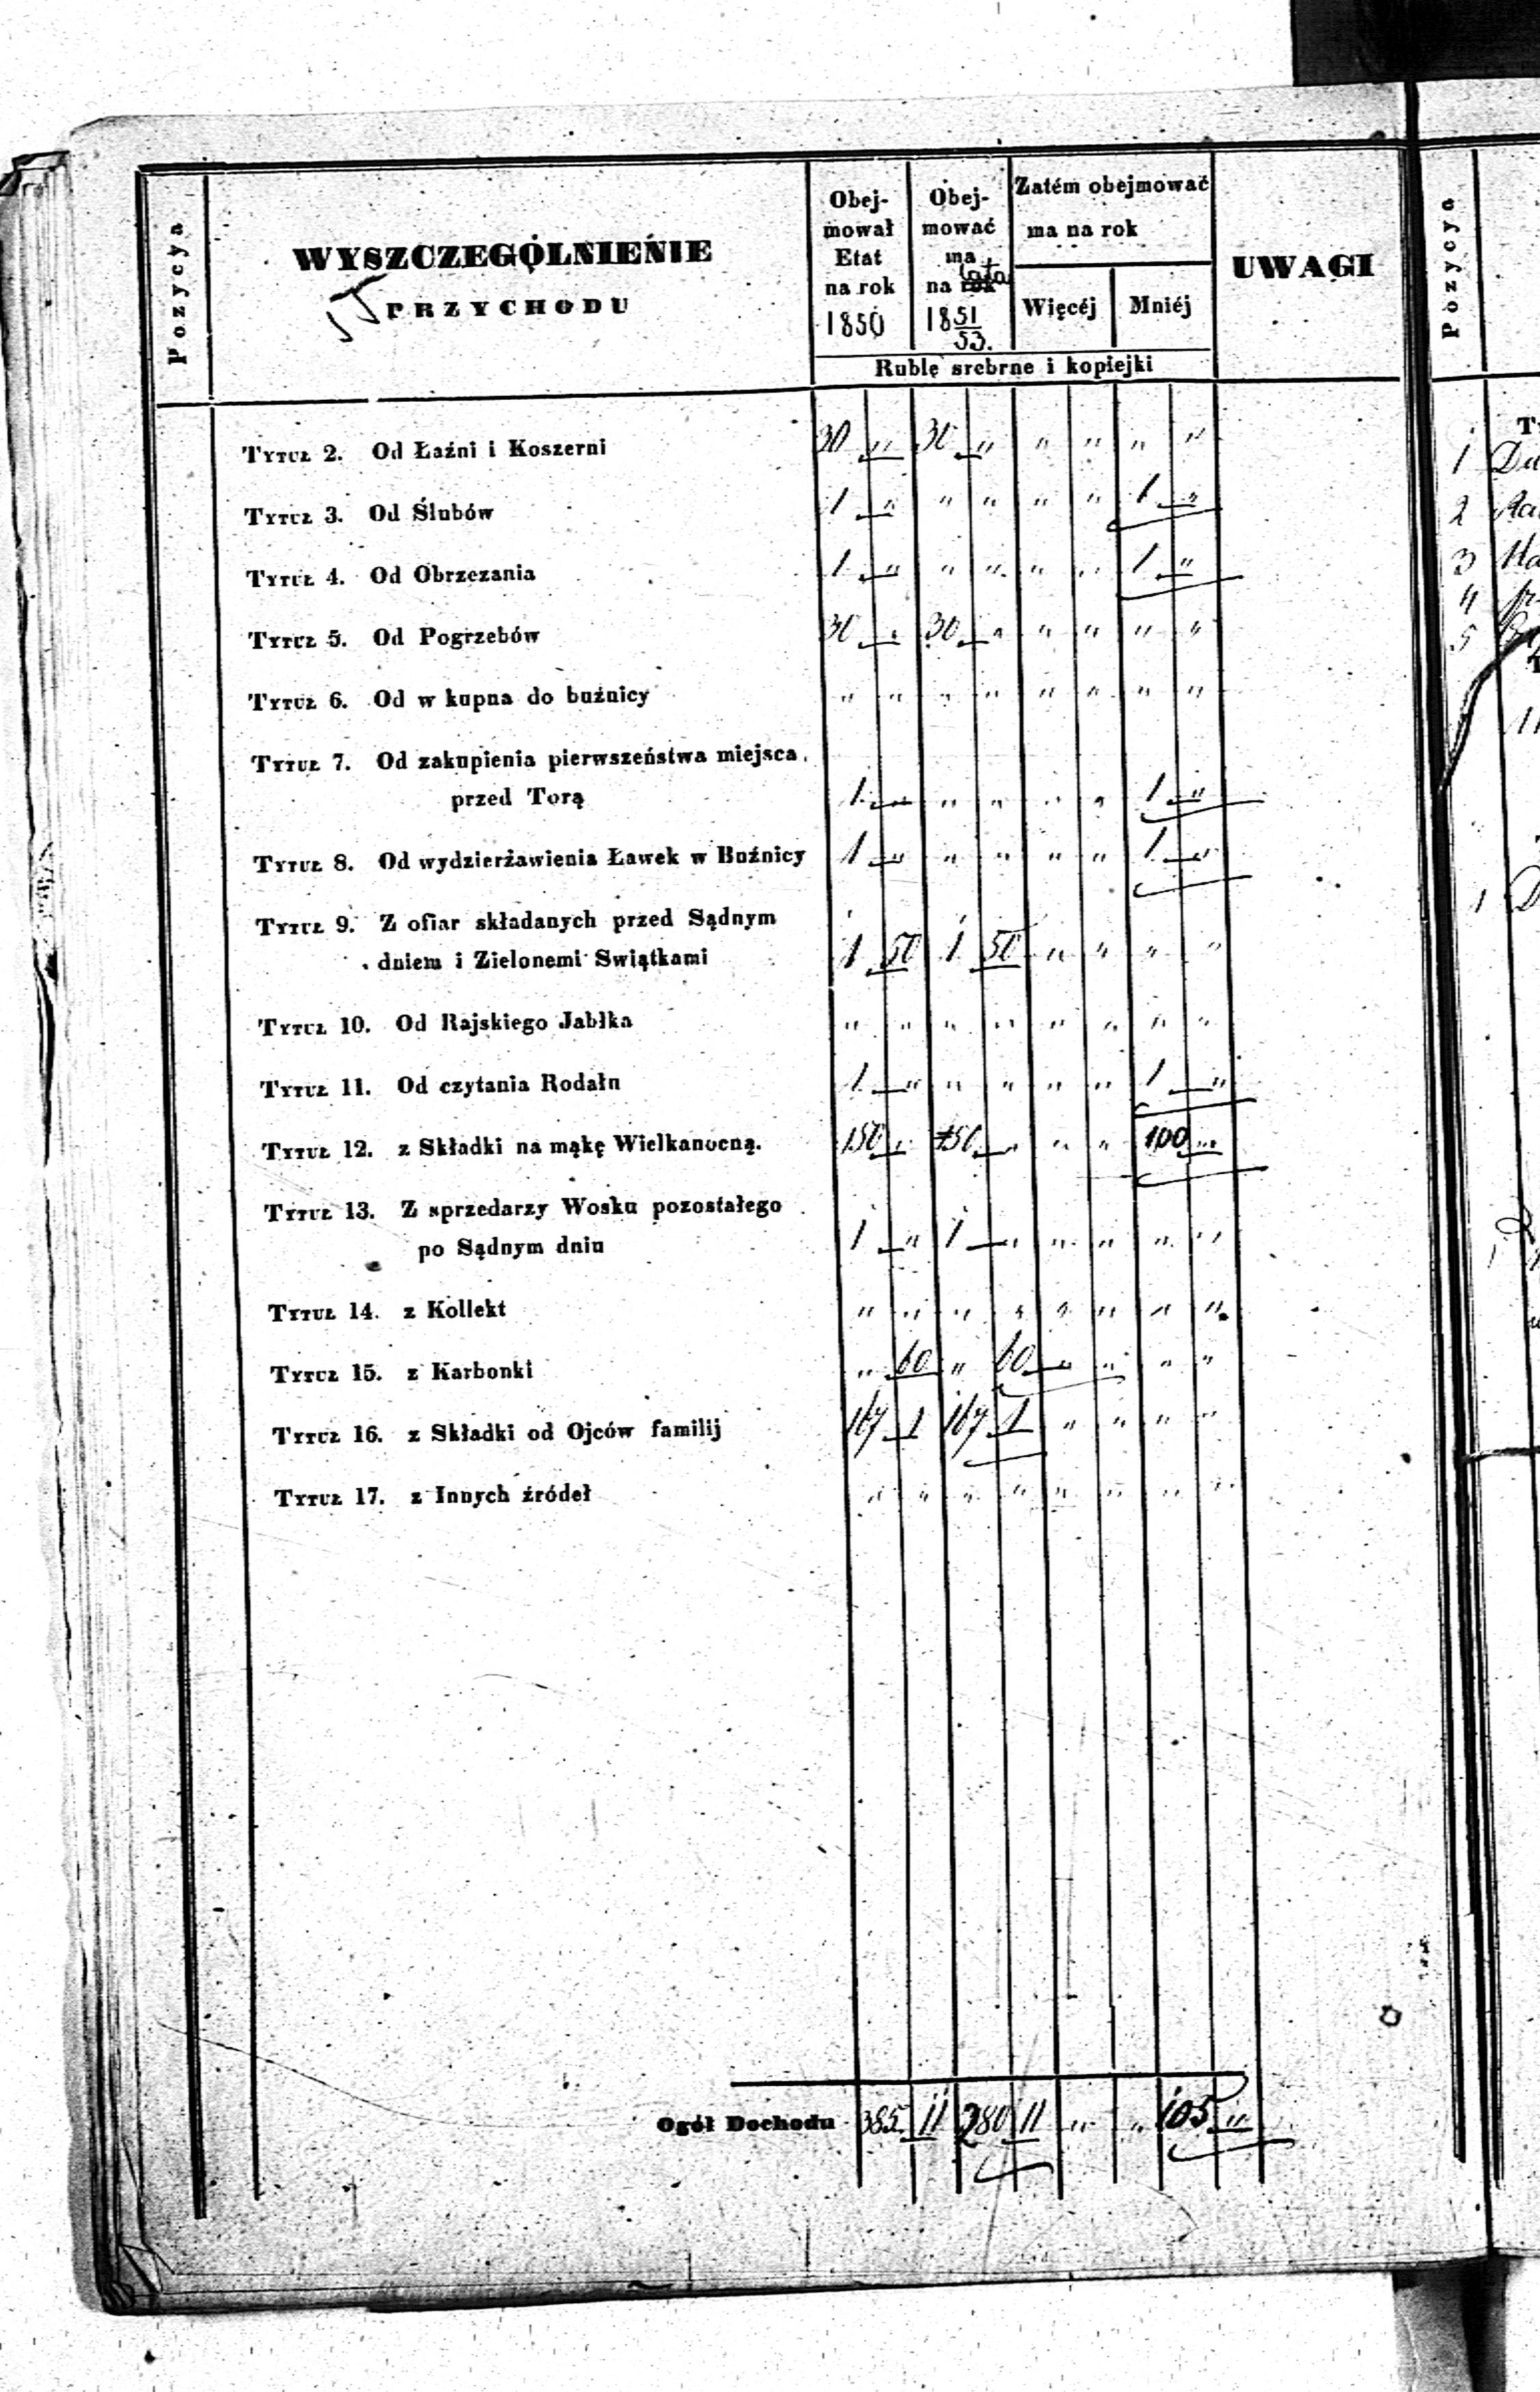 Pozycya
WYSZCZEGÓLNIENIE
PRZYCHODU
Obej-
mował
Etat
na rok
1850
Obej-
mować
ma
na rok lata
18 51/53.
Zatém obejmować
ma na rok
Więcéj Mniéj
Rublę srebrne i kopiejki
UWAGI
Tytuł 2. Od Łaźni i Koszerni 30 " 30 " " " " "
Tytuł 3. Od Ślubów 1 " " " " " 1 "
Tytuł 4. Od Obrzezania 1 " " " " " 1 "
Tytuł 5. Od Pogrzebów 30 " 30 " " " " "
Tytuł 6. Od w kupna do buźnicy " " " " " " " "
Tytuł 7. Od zakupienia pierwszeństwa miejsca
przed Torą 1 " " " " " 1 "
Tytuł 8. Od wydzierżawienia Ławek w Buźnicy 1 " " " " " 1 "
Tytuł 9. Z ofiar składanych przed Sądnym
dniem i Zielonemi Swiątkami 1 50 1 50 " " " "
Tytuł 10. Od Rajskiego Jabłka " " " " " " " "
Tytuł 11. Od czytania Rodału 1 " " " " " 1 "
Tytuł 12. z Składki na mąkę Wielkanocną. 150 " 50 " " " 100 "
Tytuł 13. Z sprzedarzy Wosku pozostałego
po Sądnym dniu 1 " 1 " " " " "
Tytuł 14. z Kollekt " " " " " " " "
Tytuł 15. z Karbonki " 60 " 60 " " " "
Tytuł 16. z Składki od Ojców familij 167 1 167 1 " " " "
Tytuł 17. z Innych źródeł " " " " " " " "
Ogół Dochodu 385 11 280 11 " " 105 "
Pozycya
1
2
3
4
5
1